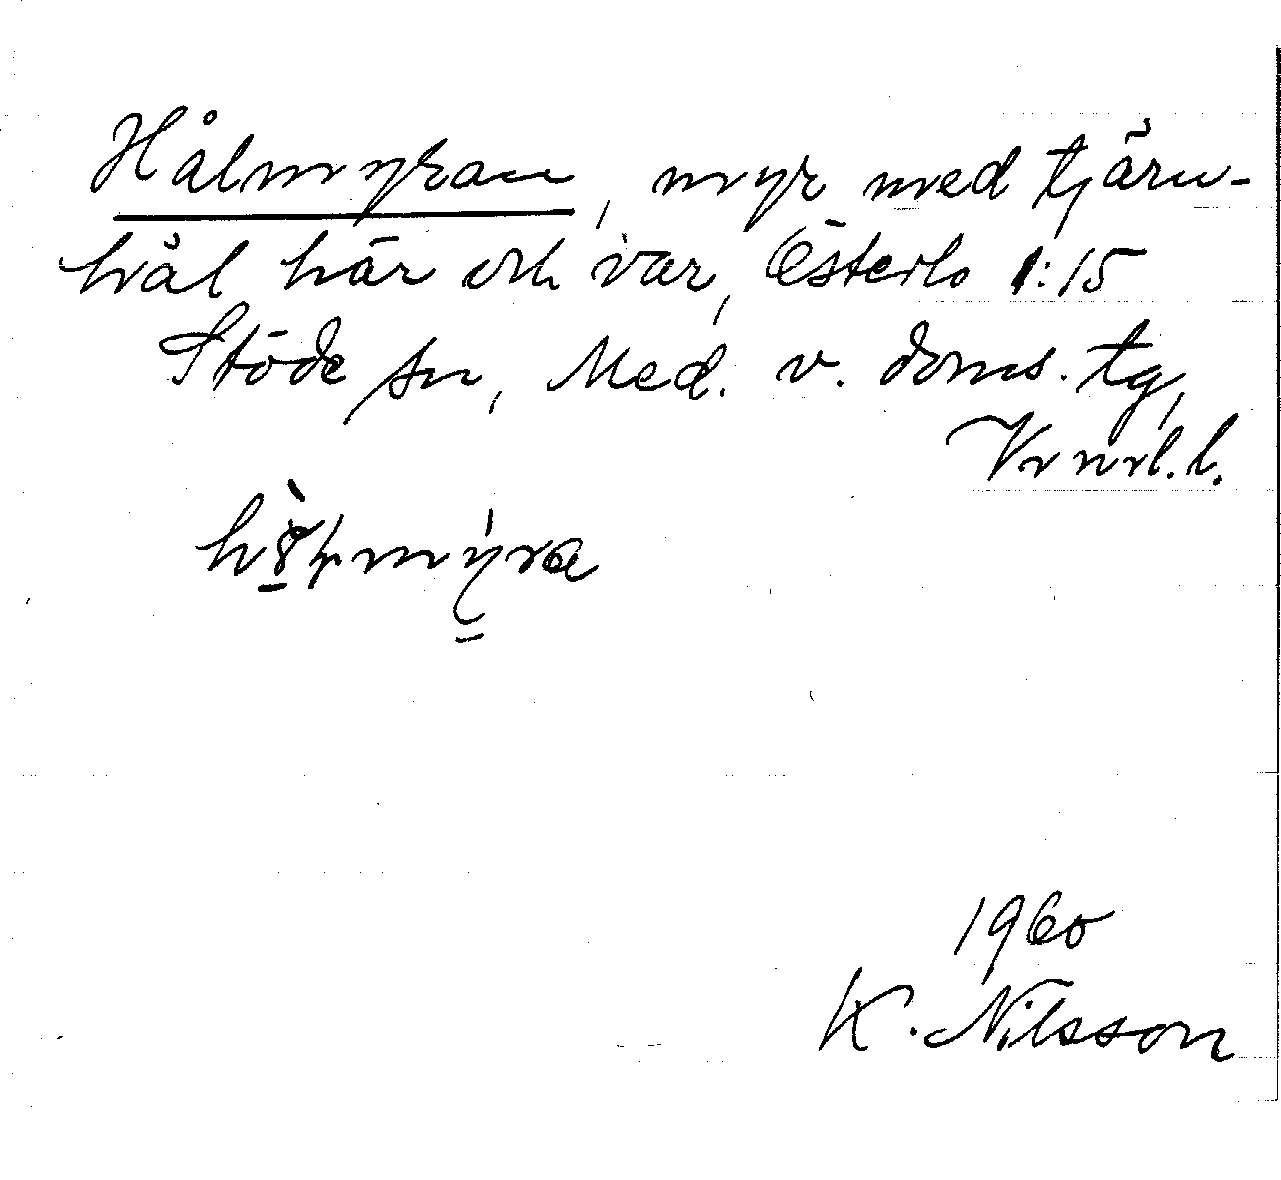 Hålmyran, myr med tjärn-
hål här och var, Österlo 1:15
Stöde sn, Med. v. doms. tg,
Vrnrl. l.
1960
K. Nilsson